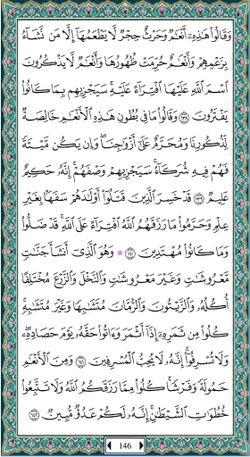 وَقَالُوا۟ هَٰذِهِۦٓ أَنْعَٰمٌ وَحَرْثٌ حِجْرٌ لَّا يَطْعَمُهَآ إِلَّا مَن نَّشَآءُ
بِزَعْمِهِمْ وَأَنْعَٰمٌ حُرِّمَتْ ظُهُورُهَا وَأَنْعَٰمٌ لَّا يَذْكُرُونَ
ٱسْمَ ٱللَّهِ عَلَيْهَا ٱفْتِرَآءً عَلَيْهِ ۚ سَيَجْزِيهِم بِمَا كَانُوا۟
يَفْتَرُونَ ١٣٨ وَقَالُوا۟ مَا فِى بُطُونِ هَٰذِهِ ٱلْأَنْعَٰمِ خَالِصَةٌ
لِّذُكُورِنَا وَمُحَرَّمٌ عَلَىٰٓ أَزْوَٰجِنَا ۖ وَإِن يَكُن مَّيْتَةً
فَهُمْ فِيهِ شُرَكَآءُ ۚ سَيَجْزِيهِمْ وَصْفَهُمْ ۚ إِنَّهُۥ حَكِيمٌ
عَلِيمٌ ١٣٩ قَدْ خَسِرَ ٱلَّذِينَ قَتَلُوٓا۟ أَوْلَٰدَهُمْ سَفَهًۢا بِغَيْرِ
عِلْمٍ وَحَرَّمُوا۟ مَا رَزَقَهُمُ ٱللَّهُ ٱفْتِرَآءً عَلَى ٱللَّهِ ۚ قَدْ ضَلُّوا۟
وَمَا كَانُوا۟ مُهْتَدِينَ ١٤٠ ۞ وَهُوَ ٱلَّذِىٓ أَنشَأَ جَنَّٰتٍ
مَّعْرُوشَٰتٍ وَغَيْرَ مَعْرُوشَٰتٍ وَٱلنَّخْلَ وَٱلزَّرْعَ مُخْتَلِفًا
أُكُلُهُۥ وَٱلزَّيْتُونَ وَٱلرُّمَّانَ مُتَشَٰبِهًا وَغَيْرَ مُتَشَٰبِهٍ ۚ
كُلُوا۟ مِن ثَمَرِهِۦٓ إِذَآ أَثْمَرَ وَءَاتُوا۟ حَقَّهُۥ يَوْمَ حَصَادِهِۦ ۖ
وَلَا تُسْرِفُوٓا۟ ۚ إِنَّهُۥ لَا يُحِبُّ ٱلْمُسْرِفِينَ ١٤١ وَمِنَ ٱلْأَنْعَٰمِ
حَمُولَةً وَفَرْشًا ۚ كُلُوا۟ مِمَّا رَزَقَكُمُ ٱللَّهُ وَلَا تَتَّبِعُوا۟
خُطُوَٰتِ ٱلشَّيْطَٰنِ ۚ إِنَّهُۥ لَكُمْ عَدُوٌّ مُّبِينٌ ١٤٢
146